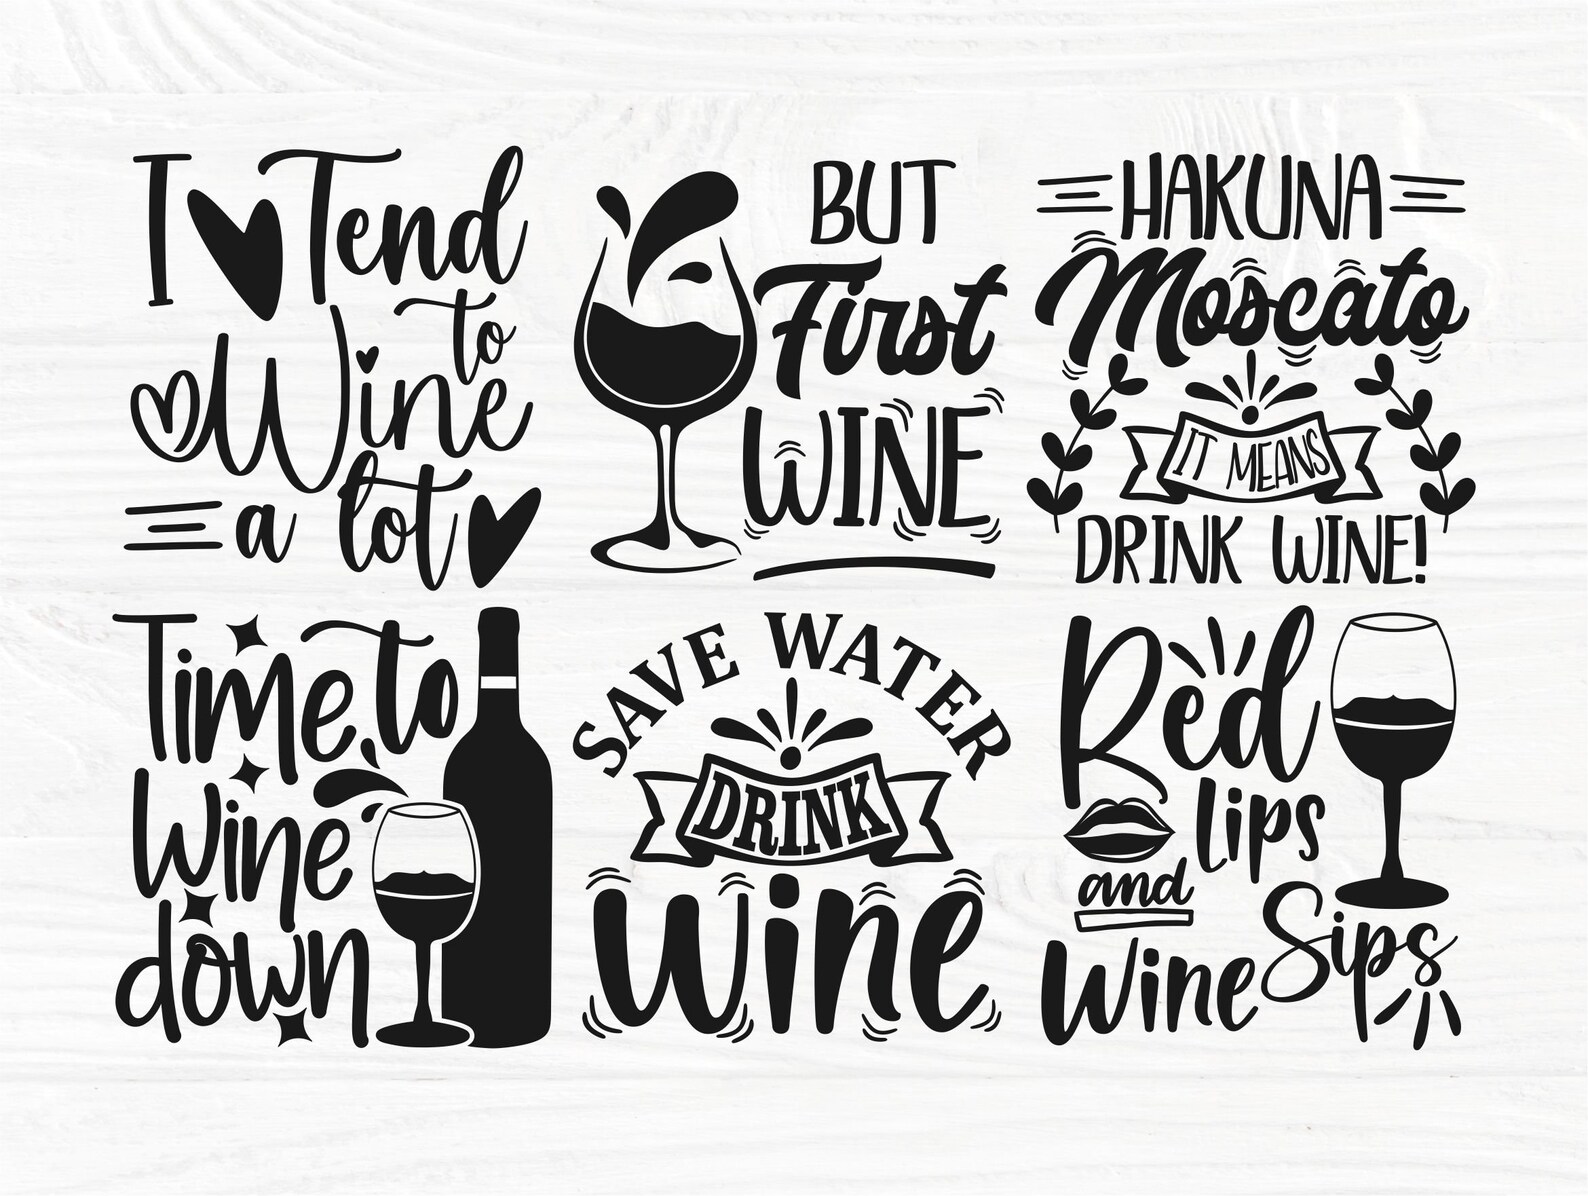 I Tend
to
Wine
a lot
BUT
First
WINE
HAKUNA
Moscato
IT MEANS
DRINK WINE!
Time to
Wine
down
SAVE WATER
DRINK
Wine
Red
Lips
and
Wine
Sips